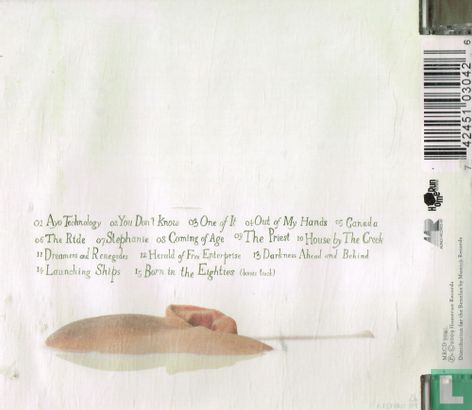 01 Ayo Technology 02 You Don't Know 03 One of It 04 Out of My Hands 05 Canada
06 The Ride 07 Stephanie 08 Coming of Age 09 The Priest 10 House by The Creek
11 Dreamers and Renegades 12 Herald of Free Enterprise 13 Darkness Ahead and Behind
14 Launching Ships 15 Born in the Eighties (bonus track)
7 42451 03042 6
Home Run
℗+© 2009 Homerun Records
Distribution for the Benelux by Munich Records